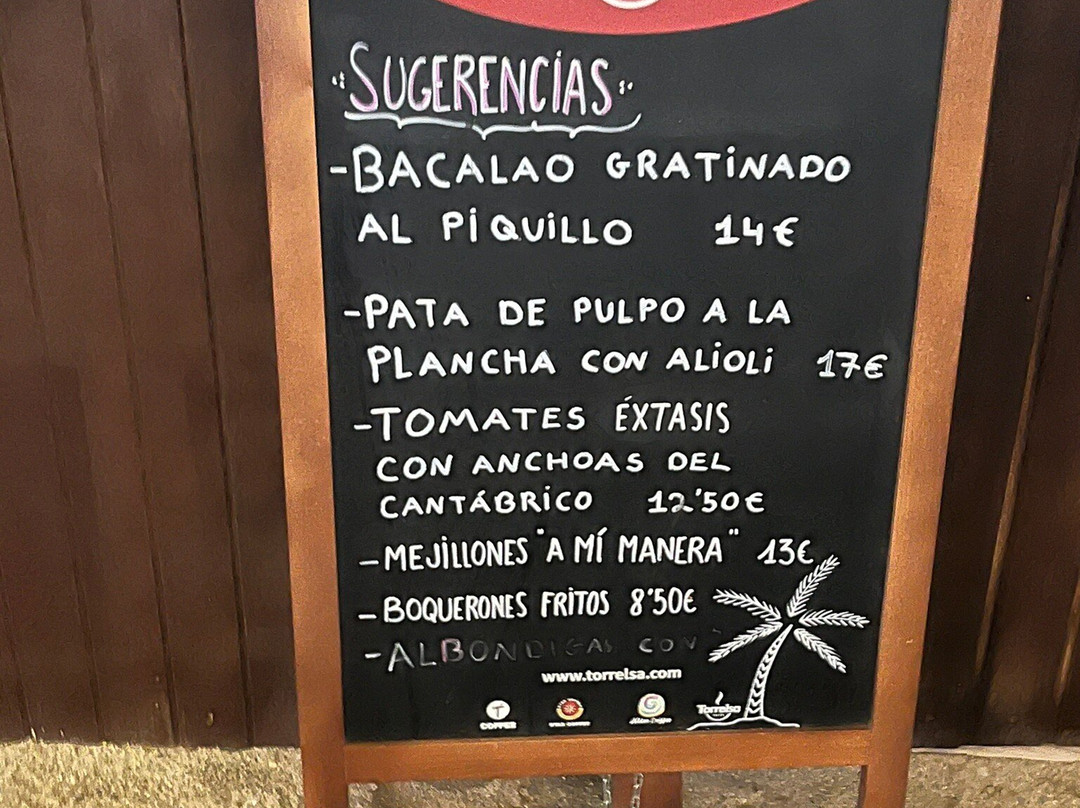 SUGERENCIAS
-BACALAO GRATINADO
AL PIQUILLO 14€
-PATA DE PULPO A LA
PLANCHA CON ALIOLI 17€
-TOMATES ÉXTASIS
CON ANCHOAS DEL
CANTÁBRICO 12'50€
-MEJILLONES "A MÍ MANERA" 13€
-BOQUERONES FRITOS 8'50€
-ALBONDIGAS CON
www.torrelsa.com
COFFEE
Torrelsa